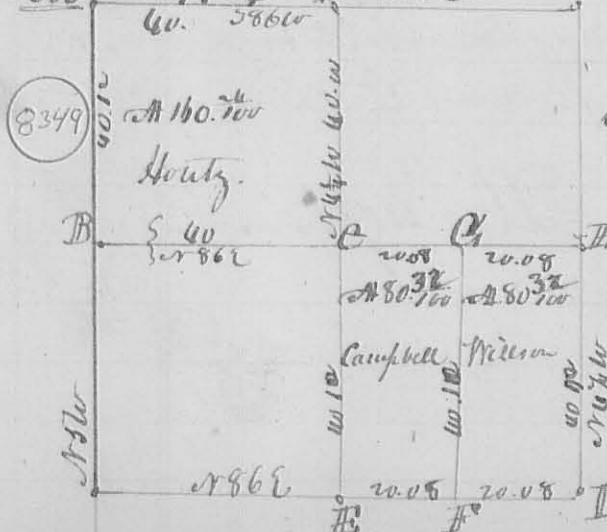 40. S86W
8349
40.12
A 160.24/100
N4½W 40.00
Houtz.
B
40
N86E
C
G
20.08 20.08
A 80.32/100 A 80.32/100
Campbell Willson
40.12
40.12
40.12
N4½W
N5W
N86E
20.08 20.08
E
F